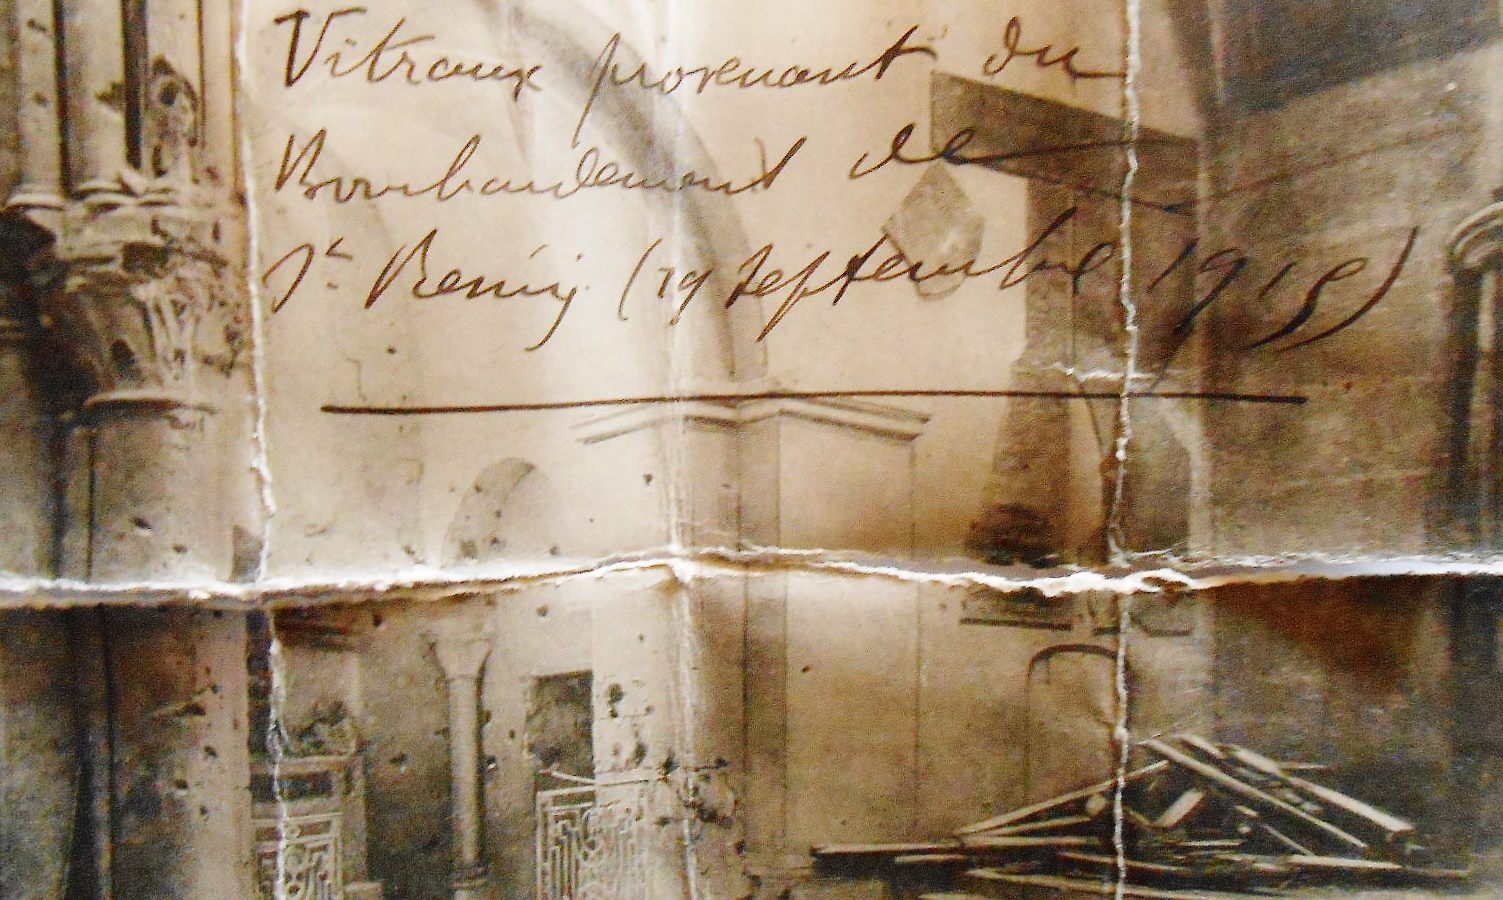 Vitraux provenant du
Bombardement de
St. Remi (19 septembre 1915)